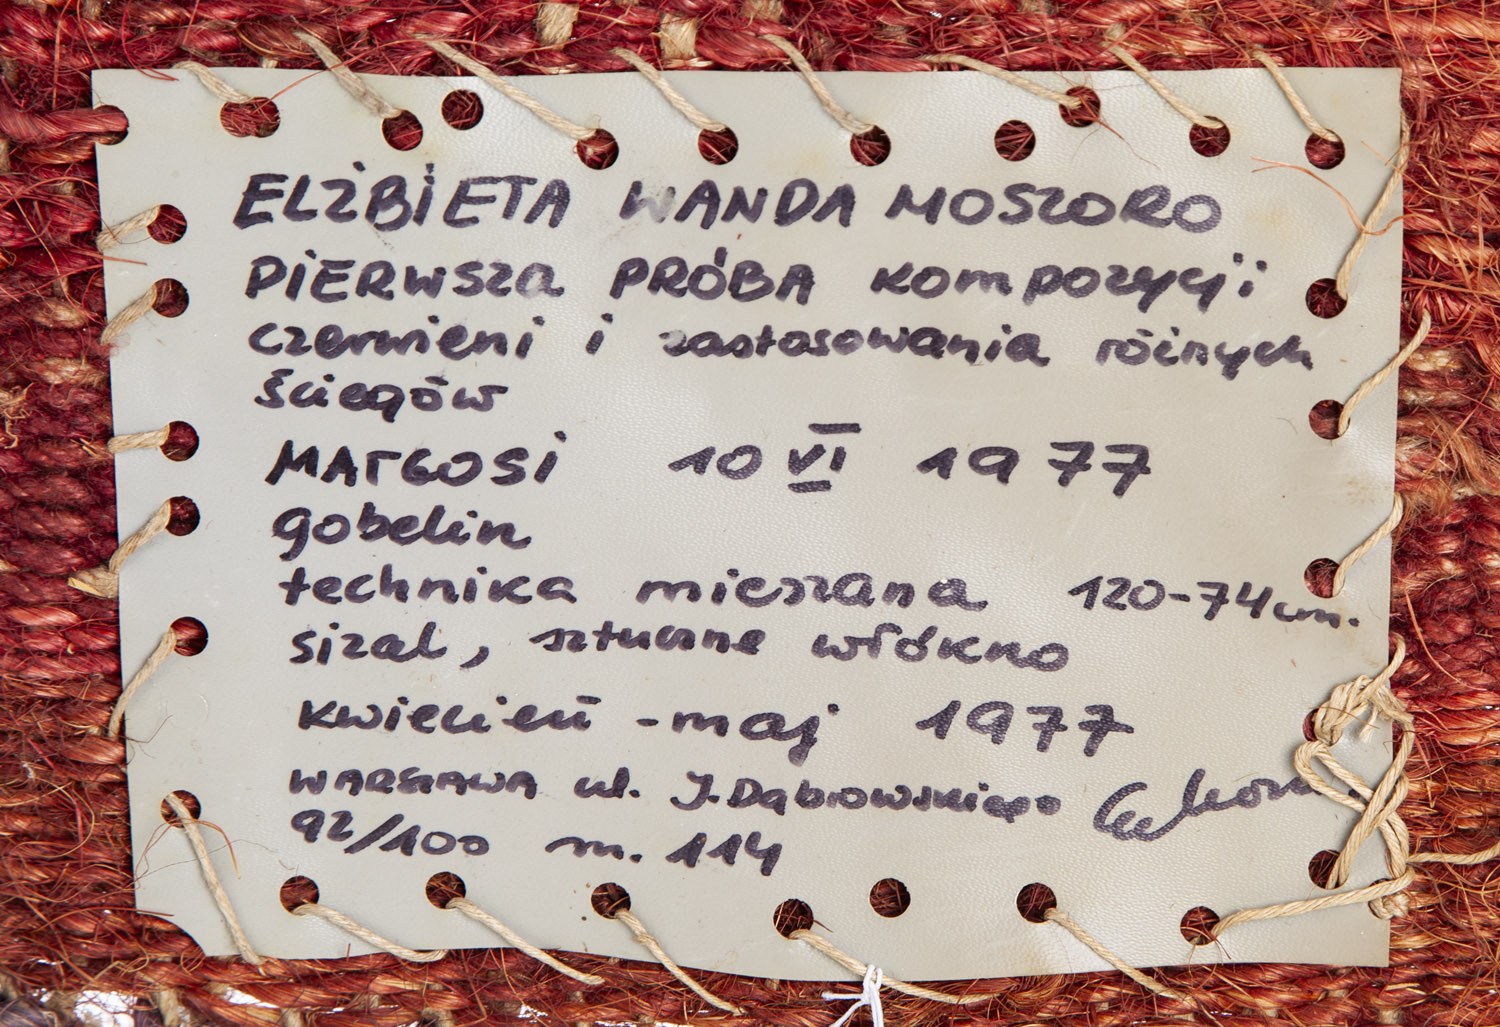 ELŻBIETA WANDA MOSZORO
PIERWSZA PRÓBA KOMPOZYCJI
czerwieni i zastosowania różnych
ściegów
MAŁGOSI 10 VI 1977
gobelin
technika mieszana 120-74cm.
sizal, sztuczne włókno
kwiecień - maj 1977
WARSZAWA ul. J. Dąbrowskiego
92/100 m. 114